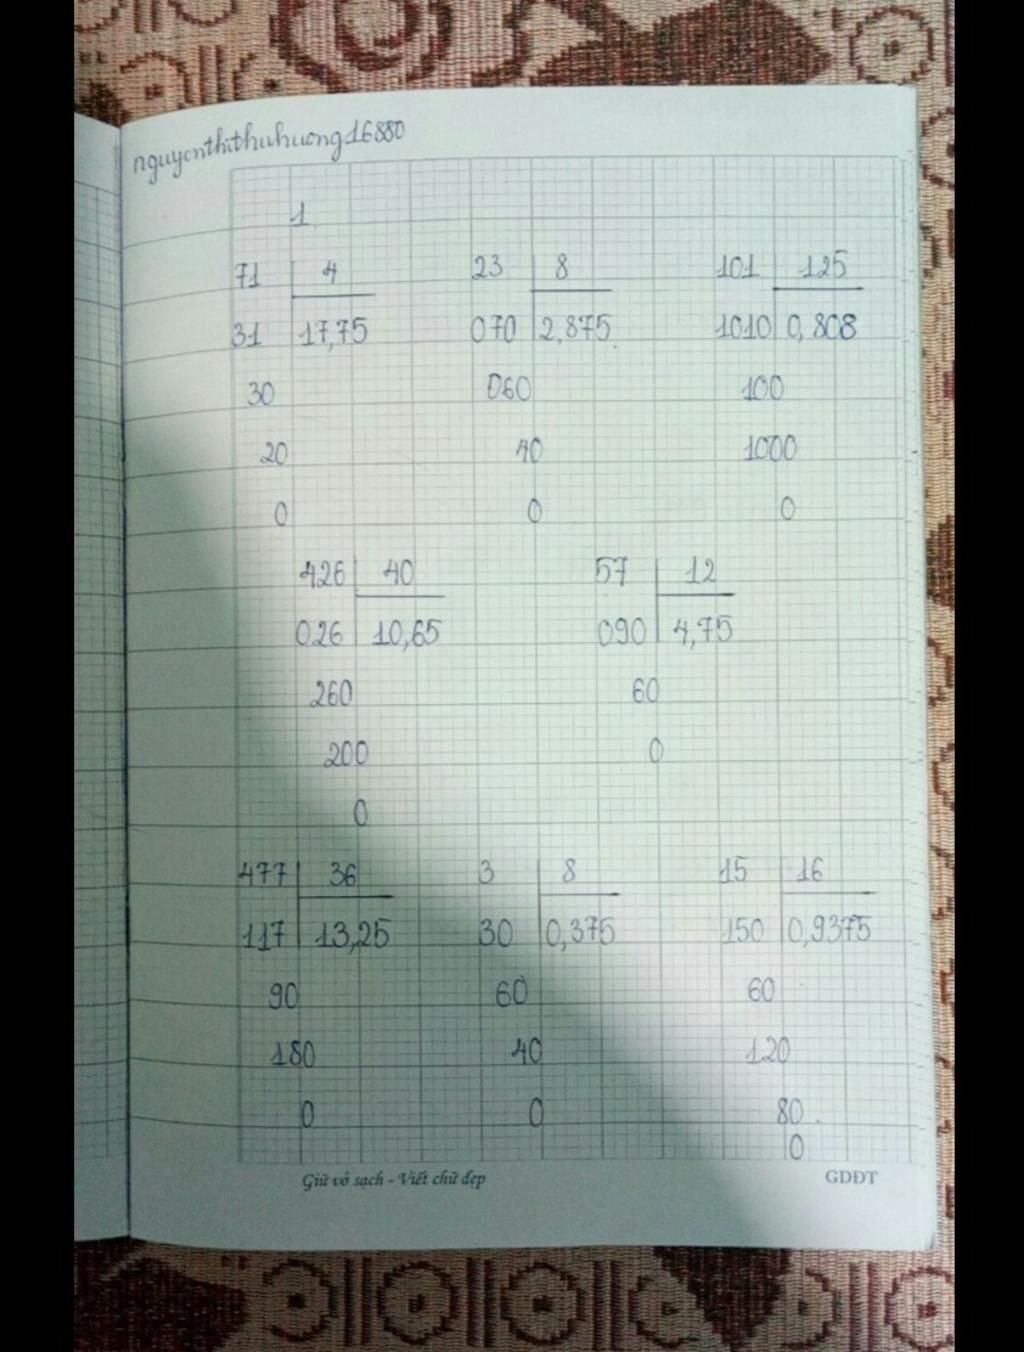 nguyenthithuhuong16880
1
71 4 23 8 101 125
31 17,75 070 2,875 1010 0,808
30 060 100
20 40 1000
0 0 0
426 40 57 12
026 10,65 090 4,75
260 60
200 0
0
477 36 3 8 15 16
117 13,25 30 0,375 150 0,9375
90 60 60
180 40 120
0 0 80
0
Giữ vở sạch - Viết chữ đẹp GDĐT